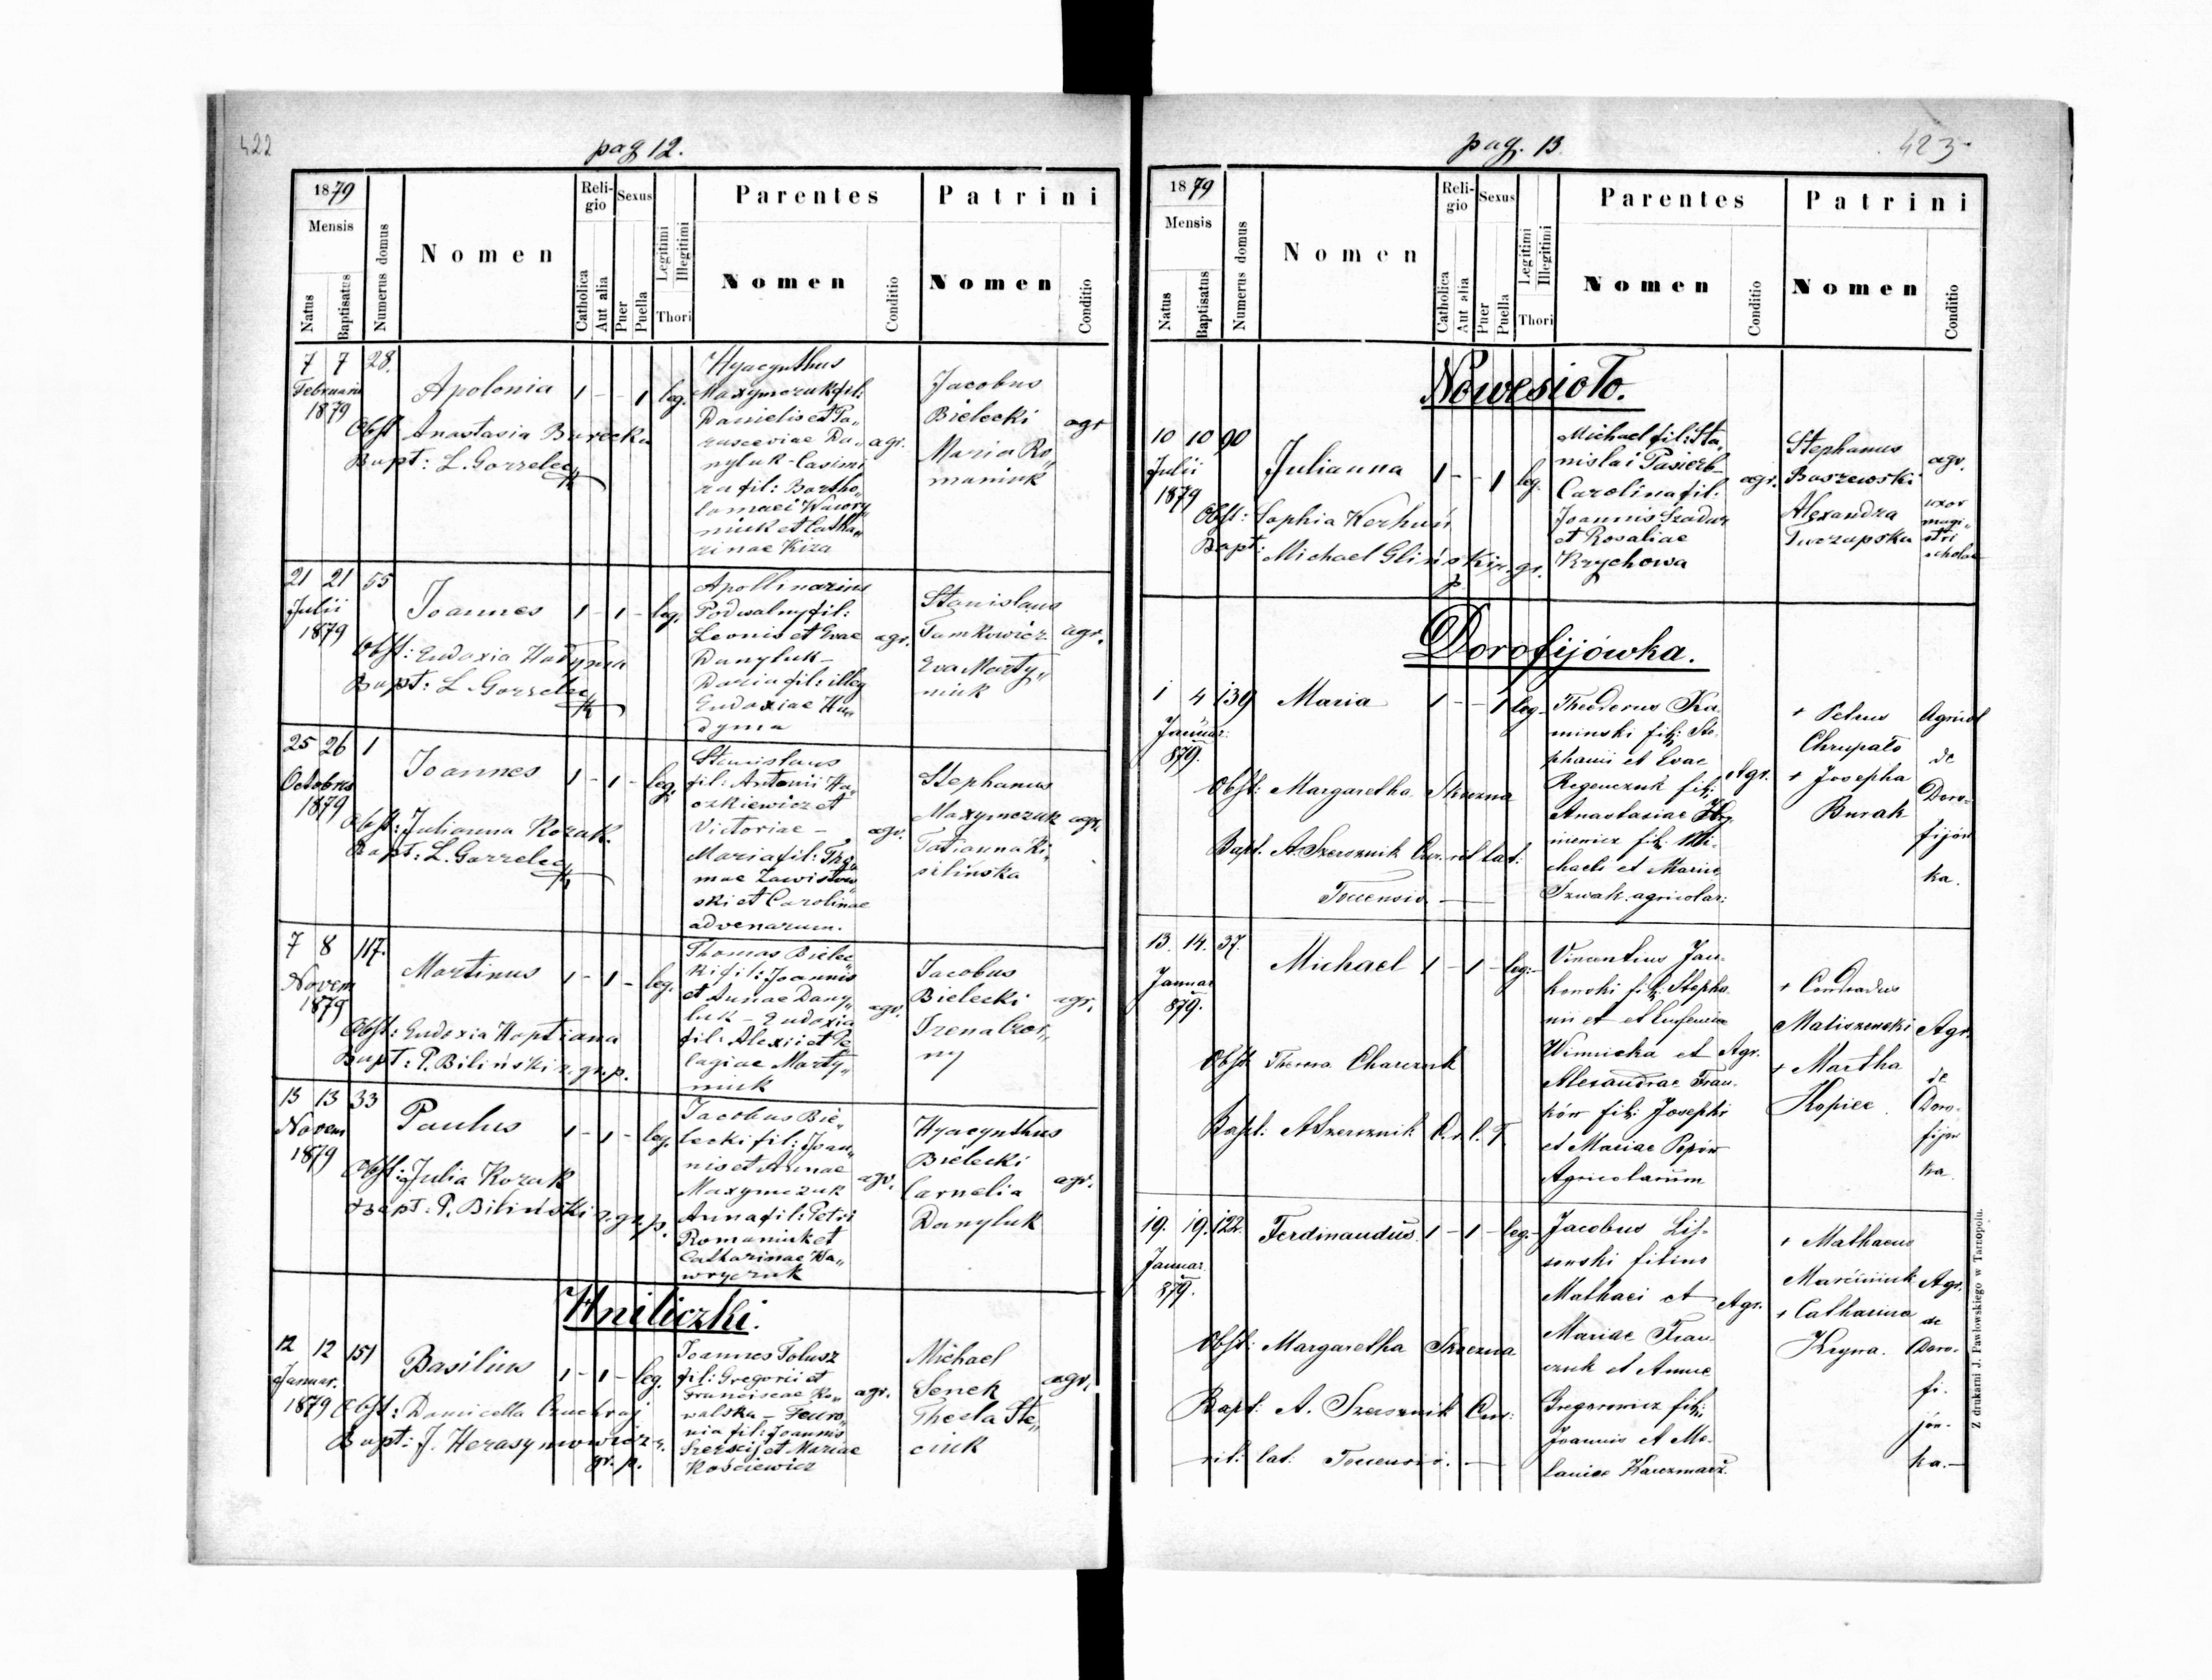 422
pag 12.
1879
Mensis
Natus
Baptisatus
Numerus domus
Nomen
Religio
Catholica
Aut alia
Sexus
Puer
Puella
Legitimi
Illegitimi
Thori
Parentes
Nomen
Conditio
Patrini
Nomen
Conditio
7 7 28.
Februarii
1879
Apolonia 1 - - 1 leg.
Obst Anastasia Burecka
Bapt: L. Gorzelec
Hyacynthus
Maxymczuk fil:
Danielis et Pa„
rasceviae Da„
nyluk - Casimi
ra fil: Bartho„
lomaei Wawry„
niuk et Catha„
rinae Kiza
agr.
Jacobus
Bielecki
Maria Ro„
maniuk
agr
21 21 55
Julii
1879
Joannes 1 - 1 - leg.
Obst: Eudoxia Hadyma
Bapt: L. Gorzelec
Apollinarius
Podwalny fil:
Leonis et Evae
Danyluk -
Daria fil: illeg
Eudoxiae Ha„
dyma
agr.
Stanislaus
Tamkowicz
Eva Marty„
niuk
agr.
25 26 1
Octobris
1879
Joannes 1 - 1 - leg.
Obst: Julianna Kozak.
Bapt: L. Gorzelec
Stanislaus
fil: Antonii Ha„
czkiewicz et
Victoriae -
Maria fil: Tho„
mae Zawistow„
ski et Carolinae
advenarum.
agr.
Stephanus
Maxymczuk
Tatianna Ki„
silińska
agr.
7 8 117.
Novem
1879
Martinus 1 - 1 - leg.
Obst: Eudoxia Haptiana
Bapt: P. Biliński r. gr. p.
Thomas Bielec„
ki fil: Joannis
et Annae Dany„
luk - Eudoxia
fil: Alexii et Pe
lagiae Marty„
niuk
agr.
Jacobus
Bielecki
Irena Czor„
ny
agr.
13 13 33
Novem
1879
Paulus 1 - 1 - leg.
Obst: Julia Kozak
Bapt: P. Biliński r. gr. p.
Jacobus Bie„
lecki fil: Joan„
nis et Annae
Maxymczuk
Anna fil: Petri
Romaniuk et
Catharinae Ha„
wryczuk
agr.
Hyacynthus
Bielecki
Cornelia
Danyluk
agr.
Hniliczki.
12 12 151
Januar.
1879
Basilius 1 - 1 - leg.
Obst: Domicella Czuchraj
Bapt: J. Herasymowicz r.
gr. p.
Joannes Tolusz
fil: Gregorii et
Franciscae Ko„
walska - Feuro„
nia fil: Joannis
Szerszij et Mariae
Kościewicz
agr.
Michael
Senek
Thecla Ste„
ciuk
agr.
pag. 13.
423
1879
Mensis
Natus
Baptisatus
Numerus domus
Nomen
Religio
Catholica
Aut alia
Sexus
Puer
Puella
Legitimi
Illegitimi
Thori
Parentes
Nomen
Conditio
Patrini
Nomen
Conditio
Nowesioło.
10 10 90
Julii
1879
Julianna 1 - - 1 leg.
Obst: Sophia Kerhuń
Bapt: Michael Gliński r. gr.
p.
Michael fil: Sta„
nislai Pasierb -
Carolina fil:
Joannis Szadur
et Rosaliae
Krychowa
agr.
Stephanus
Baszewski
Alexandra
Twrzapska
agr.
uxor
magi„
stri
scholae
Dorofijówka.
1 4 139
Januar.
879.
Maria 1 - - 1 leg.
Obst: Margaretha Skuzna
Bapt. A. Szersznik Cur. rit lat:
Touensis
Theodorus Ka
minski fil: Ste
phanii et Evae
Regenczuk fil:
Anastasiae Hry„
niewicz fil: Mi„
chaeli et Mariae
Szwak agricolar:
Agr.
+ Petrus
Chrupało
+ Josepha
Burak
Agricol
de
Doro-
fijów
ka.
13. 14. 37.
Januar
879.
Michael 1 - 1 - leg.
Obst Theresa Charczuk
Bapt: A Szersznik C. r. l. T.
Vincentius Jan-
kowski fil: Stepha
nii et et Eufemiae
Winnicka et
Alexandrae Fran-
ków fil: Josephi
et Mariae Popów
Agricolarum
Agr.
+ Condradus
Maliszewski
+ Martha
Kopiec.
Agr.
de
Doro-
fijów
ka
19. 19. 122.
Januar.
879.
Ferdinandus. 1 - 1 - leg.-
Obst: Margaretha Skuzna
Bapt: A. Szersznik Cur:
rit: lat: Touensis. -
Jacobus Lis-
sowski filius
Mathaei et
Mariae Fran-
czuk et Annae
Gregorowicz fil:
Joannis et Me-
laniae Karczmarz.
Agr.
+ Mathaeus
Marciniuk
+ Catharina
Krywa.
Agr.
de
Doro-
fi-
jów-
ka.-
Z drukarni J. Pawłowskiego w Tarnopolu.